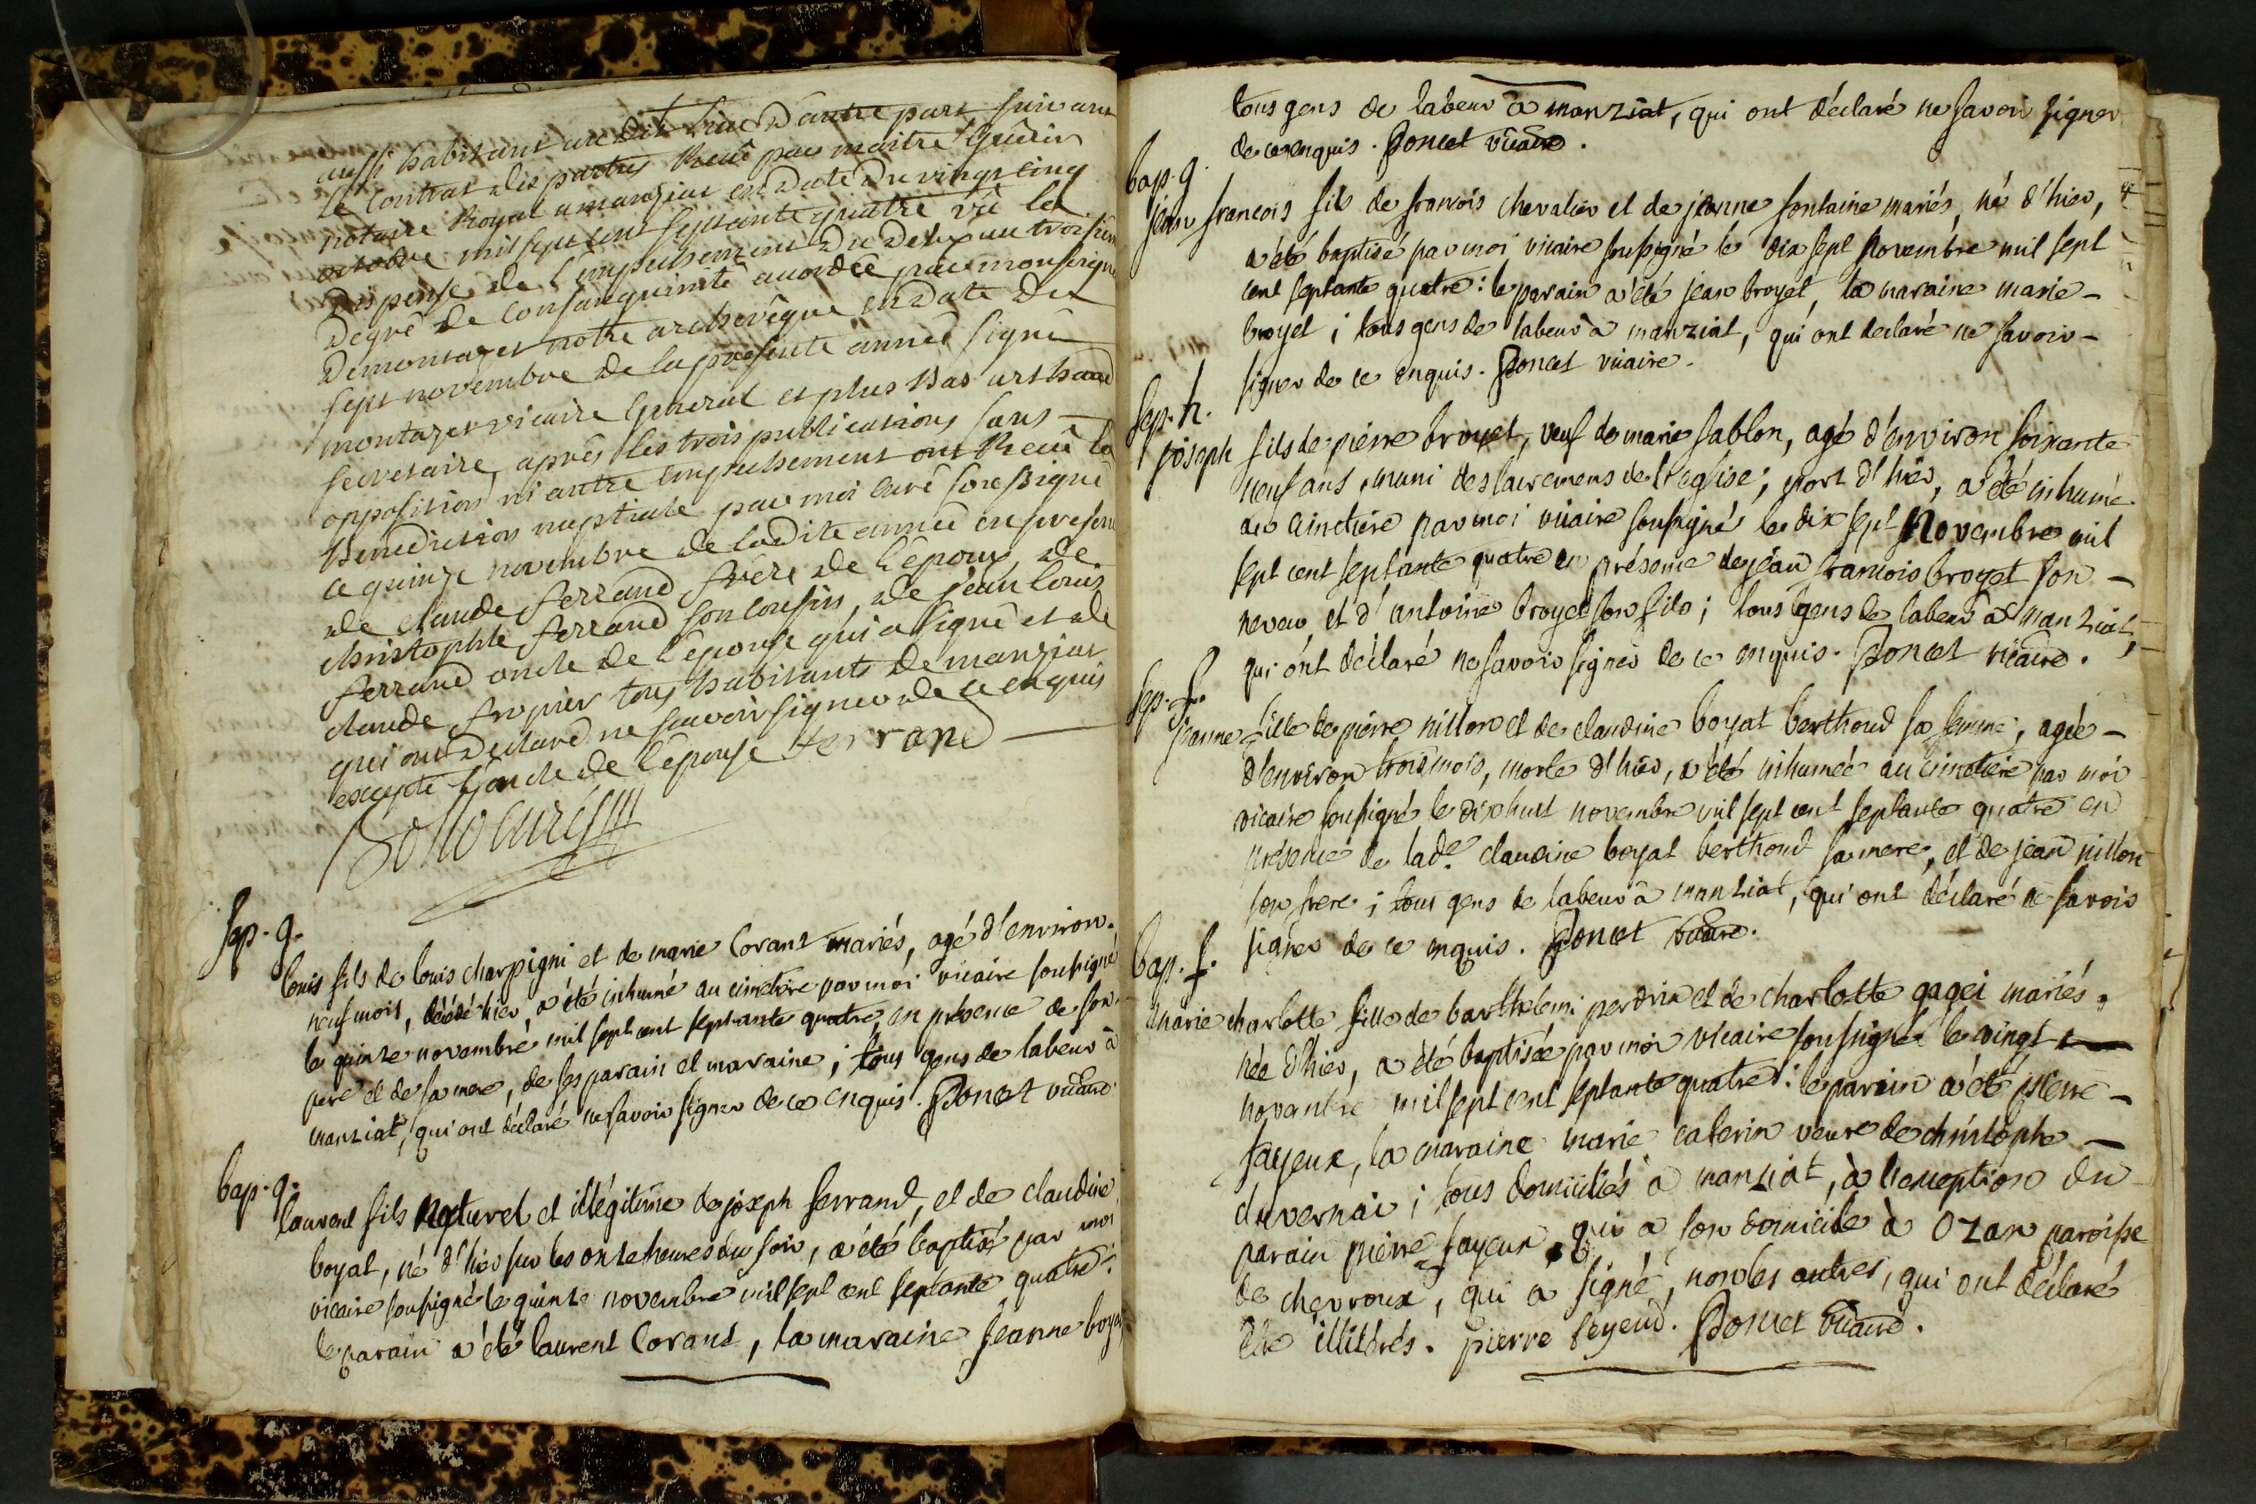 aussi habitant au dit lieu d'autre part suivant
le contrat des parties Receu par maitre guérin
notaire Royal a manziat en date du vingt cinq
octobre mil sept cent septante quatre vû la
dispense de l'empechement du deux au troisiem
degré de Consanguinité accordée par monseigneu
demontazet notre archevêque en date du
sept novembre de la presente année signé
montazet vicaire general et plus bas
secretaire, aprés les trois publications sans
opposition ni autre empechement ont Receu la
Benediction nuptiale par moi curé soussigné
ce quinze novembre de ladite année en presenc
de claude ferrand frere de l'epoux de
christophle ferrand son cousin, de jean louis
ferrand oncle de l'epouse qui a signé et de
claude tous habitants de manziat
qui ont declaré ne savoir signer de ce enquis
excepté l'oncle de l'epouse ferrand
curé
sep. g.
louis fils de louis charpigni et de marie Corant mariés, agé d'environ
neuf mois, décédé hier, a été inhumé au cimetière par moi vicaire soussigné
le quinze novembre mil sept cent septante quatre, en présence de son
pere et de sa mere, de ses parain et maraine ; tous gens de labeur à
manziat, qui ont déclaré ne savoir signer de ce enquis. Poncet vicaire
bap. g.
laurent fils naturel et illégitime de joseph ferrand, et de claudine
boyat, né d'hier sur les onze heures du soir, a été baptisé par moi
vicaire soussigné le quinze novembre mil sept cent septante quatre :
le parain a été laurent Corant, la maraine jeanne boyat
tous gens de labeur à manziat, qui ont déclaré ne savoir signer
de ce enquis. Poncet vicaire.
bap. g.
jean francois fils de francois chevalier et de jeanne fontaine mariés, né d'hier,
a été baptisé par moi vicaire soussigné le dix sept Novembre mil sept
cent septante quatre : le parain a été jean broyet, la maraine marie
broyet ; tous gens de labeur à manziat, qui ont declaré ne savoir
signer de ce enquis. Poncet vicaire.
sep. h.
joseph fils de pierre broyet, veuf de marie sablon, agé d'environ soixante
neuf ans, muni des sacremens de l'eglise, mort d'hier, a été inhumé
au cimetière par moi vicaire soussigné le dix sept Novembre mil
sept cent septante quatre en présence de jean francois broyet son
neveu et d'antoine broyet son fils ; tous gens de labeur à manziat,
qui ont déclaré ne savoir signer de ce enquis. Poncet vicaire.
sep. f.
jeanne fille de pierre nillon et de claudine boyat berthoud sa femme, agée
d'environ trois mois, morte d'hier, a été inhumée au cimetière par moi
vicaire soussigné le dix huit novembre mil sept cent septante quatre en
présence de lade. claudine boyat berthoud sa mere, et de jean nillon
son frere ; tous gens de labeur à manziat, qui ont déclaré ne savoir
signer de ce enquis. Poncet vicaire.
bap. f.
marie charlotte fille de barthelemi perdrix et de charlotte gagei mariés,
née d'hier, a été baptisée par moi vicaire soussigné le vingt
novembre mil sept cent septante quatre : le parain a été pierre
fayeux, la maraine marie caterin veuve de christophe
duvernai ; tous domiciliés à manziat, à l'exception du
parain pierre fayeux, qui a son domicile à Ozan paroisse
de chevroux, qui a signé, non les autres, qui ont déclaré
être illitérés. pierre feyeux. Poncet vicaire.